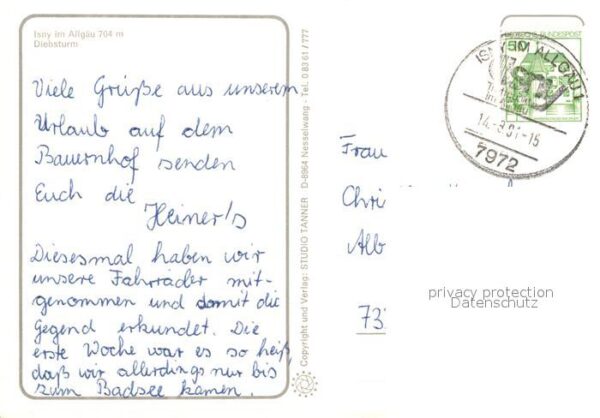 Isny im Allgäu 704 m
Diebsturm
Viele Grüße aus unserem
Urlaub auf dem
Bauernhof senden
Euch die
Heiner's
Diesesmal haben wir
unsere Fahrräder mit-
genommen und damit die
Gegend erkundet. Die
erste Woche war es so heiß
daß wir allerdings nur bis
zum Badsee kamen.
Copyright und Verlag: STUDIO TANNER · D-8964 Nesselwang · Tel. 0 83 61 / 777
50
DEUTSCHE BUNDESPOST
ISNY IM ALLGÄU 1
7972
Frau
Chri
Alb
73
privacy protection
Datenschutz